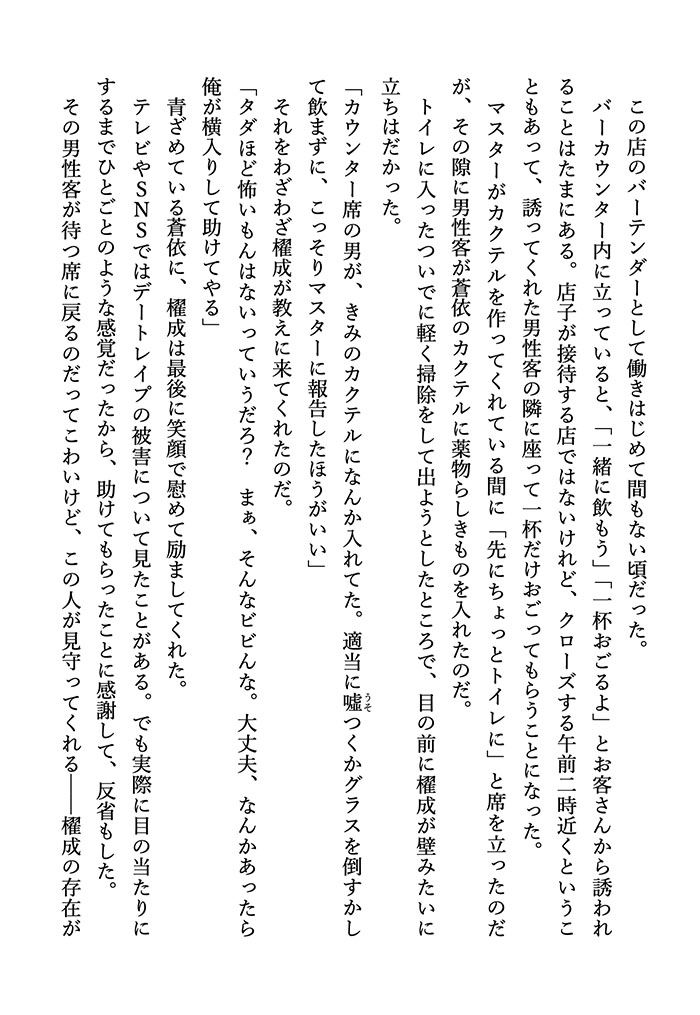 この店のバーテンダーとして働きはじめて間もない頃だった。
バーカウンター内に立っていると、「一緒に飲もう」「一杯おごるよ」とお客さんから誘われ
ることはたまにある。店子が接待する店ではないけれど、クローズする午前二時近くというこ
ともあって、誘ってくれた男性客の隣に座って一杯だけおごってもらうことになった。
マスターがカクテルを作ってくれている間に「先にちょっとトイレに」と席を立ったのだ
が、その隙に男性客が蒼依のカクテルに薬物らしきものを入れたのだ。
トイレに入ったついでに軽く掃除をして出ようとしたところで、目の前に櫂成が壁みたいに
立ちはだかった。
「カウンター席の男が、きみのカクテルになんか入れてた。適当に嘘つくかグラスを倒すかし
うそ
て飲まずに、こっそりマスターに報告したほうがいい」
それをわざわざ櫂成が教えに来てくれたのだ。
「タダほど怖いもんはないっていうだろ？　まぁ、そんなビビんな。大丈夫、なんかあったら
俺が横入りして助けてやる」
青ざめている蒼依に、櫂成は最後に笑顔で慰めて励ましてくれた。
テレビやSNSではデートレイプの被害について見たことがある。でも実際に目の当たりに
するまでひとごとのような感覚だったから、助けてもらったことに感謝して、反省もした。
その男性客が待つ席に戻るのだってこわいけど、この人が見守ってくれる――櫂成の存在が